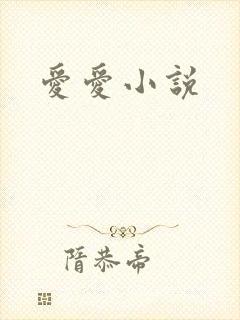 愛愛小説
隋恭帝